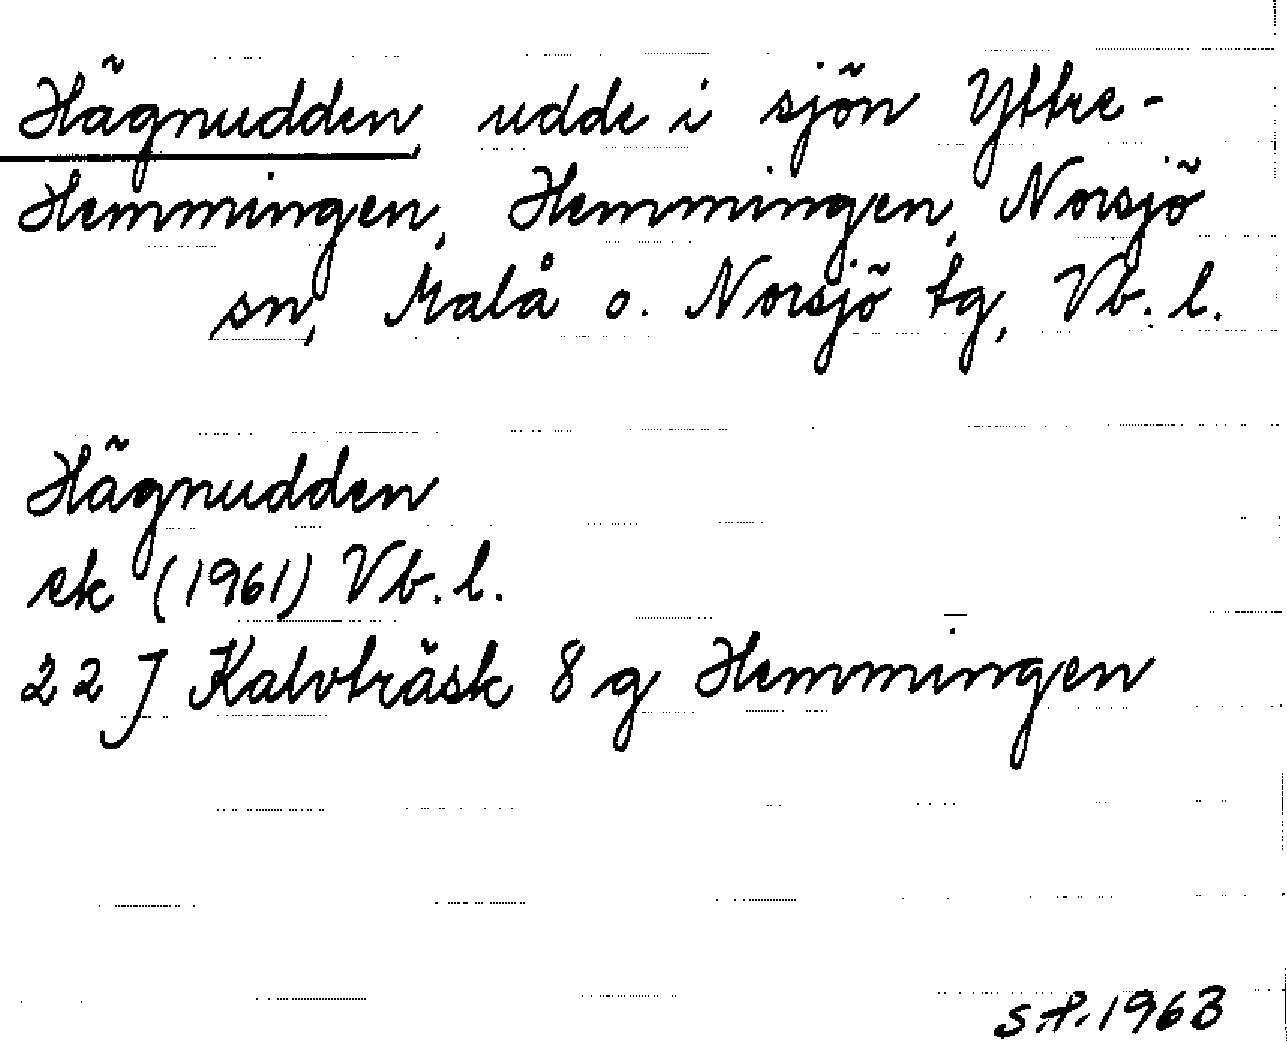 Hägnudden, udde i sjön Yttre-
Hemmingen, Hemmingen, Norsjö
sn, Malå o. Norsjö tg, Vb. l.
Hägnudden
ek (1961) Vb. l.
22 J Kalvträsk 8 g Hemmingen
S.P. 1963